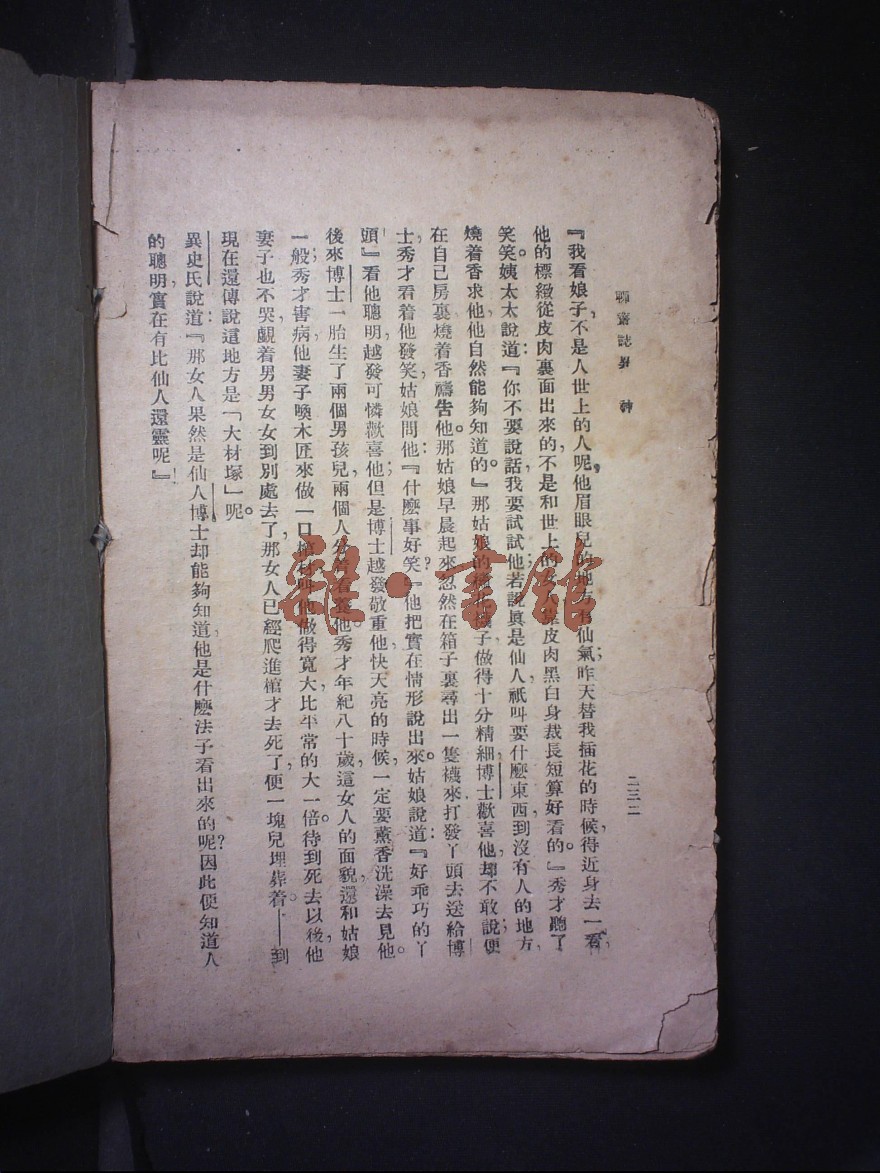 聊齋誌異
二三二
『我看娘子，不是人世上的人呢，他眉眼兒的地方有仙氣；昨天替我插花的時候，得近身去一看，
他的標緻從皮肉裏面出來的，不是和世上的女 皮肉黑白身裁長短算好看的。』秀才聽了
笑笑。姨太太說道：『你不要說話，我要試試他；若說眞是仙人，祇叫要什麽東西，到沒有人的地方，
燒着香求他，他自然能夠知道的。』那姑娘的 子做得十分精細，博士歡喜他，却不敢說；便
在自己房裏燒着香禱告他。那姑娘早晨起來，忽然在箱子裏尋出一隻襪來，打發丫頭去送給博
士，秀才看着他發笑，姑娘問他：『什麽事好笑？』他把實在情形說出來。姑娘說道：『好乖巧的丫
頭！』看他聰明，越發可憐歡喜他；但是博士越發敬重他，快天亮的時候，一定要薰香洗澡去見他。
後來博士一胎生了兩個男孩兒，兩個人分着看 他。秀才年紀八十歲，這女人的面貌還和姑娘
一般；秀才害病，他妻子喚木匠來做一口棺材，叫他做得寬大比平常的大一倍。待到死去以後，他
妻子也不哭，覷着男男女女到別處去了，那女人已經爬進棺才去死了，便一塊兒埋葬着。——到
現在還傳說這地方是「大材塚」呢。
異史氏說道：『那女人果然是仙人，博士却能夠知道，他是什麽法子看出來的呢？因此便知道人
的聰明，實在有比仙人還靈呢！』
雜·書館